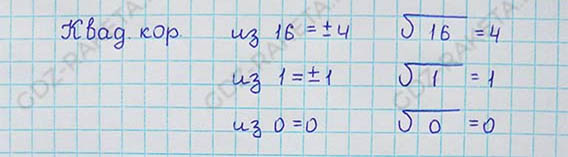 Квад. кор. из 16 = ±4 √16 = 4
из 1 = ±1 √1 = 1
из 0 = 0 √0 = 0
GDZ-RAKETA.COM